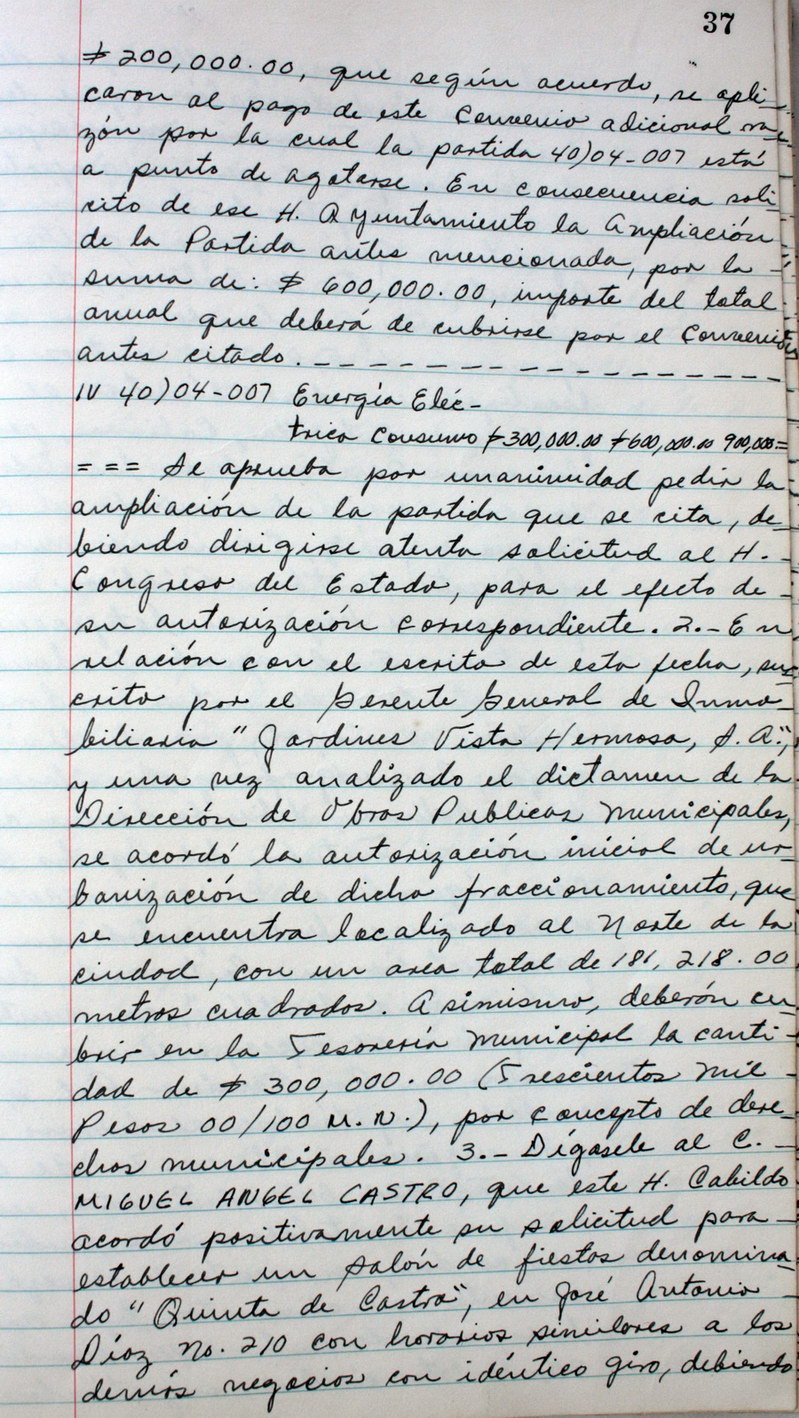 37
$200,000.00, que según acuerdo, se apli-
caron al pago de este Convenio adicional ra-
zón por la cual la partida 40)04-007 está
a punto de agotarse. En consecuencia soli-
cito de ese H. Ayuntamiento la Ampliación
de la Partida antes mencionada, por la -
suma de: $ 600,000.00, importe del total
anual que deberá de cubrirse por el Convenio
antes citado. _ _ _ _ _ _ _ _ _ _ _ _ _
IV 40)04-007 Energía Eléc-
trica Consumo $300,000.00 $600,000.00 900,000=
=== Se aprueba por unanimidad pedir la
ampliación de la partida que se cita, de-
biendo dirigirse atenta solicitud al H. -
Congreso del Estado, para el efecto de -
su autorización correspondiente. 2.- En
relación con el escrito de esta fecha, sus-
crito por el Gerente General de Inmo-
biliaria "Jardines Vista Hermosa, S.A.",
y una vez analizado el dictamen de la
Dirección de Obras Publicas Municipales,
se acordó la autorización inicial de ur-
banización de dicho fraccionamiento, que
se encuentra localizado al Norte de la
ciudad, con un area total de 181,218.00
metros cuadrados. Asimismo, deberón cu-
brir en la Tesorería Municipal la canti-
dad de $ 300,000.00 (Trescientos Mil -
Pesos 00/100 M.N.), por concepto de dere-
chos municipales. 3.- Dígasele al C. -
MIGUEL ANGEL CASTRO, que este H. Cabildo
acordó positivamente su solicitud para -
establecer un salón de fiestas denomina-
do "Quinta de Castro", en José Antonio -
Díaz No. 210 con horarios similares a los
demás negocios con idéntico giro, debiendo